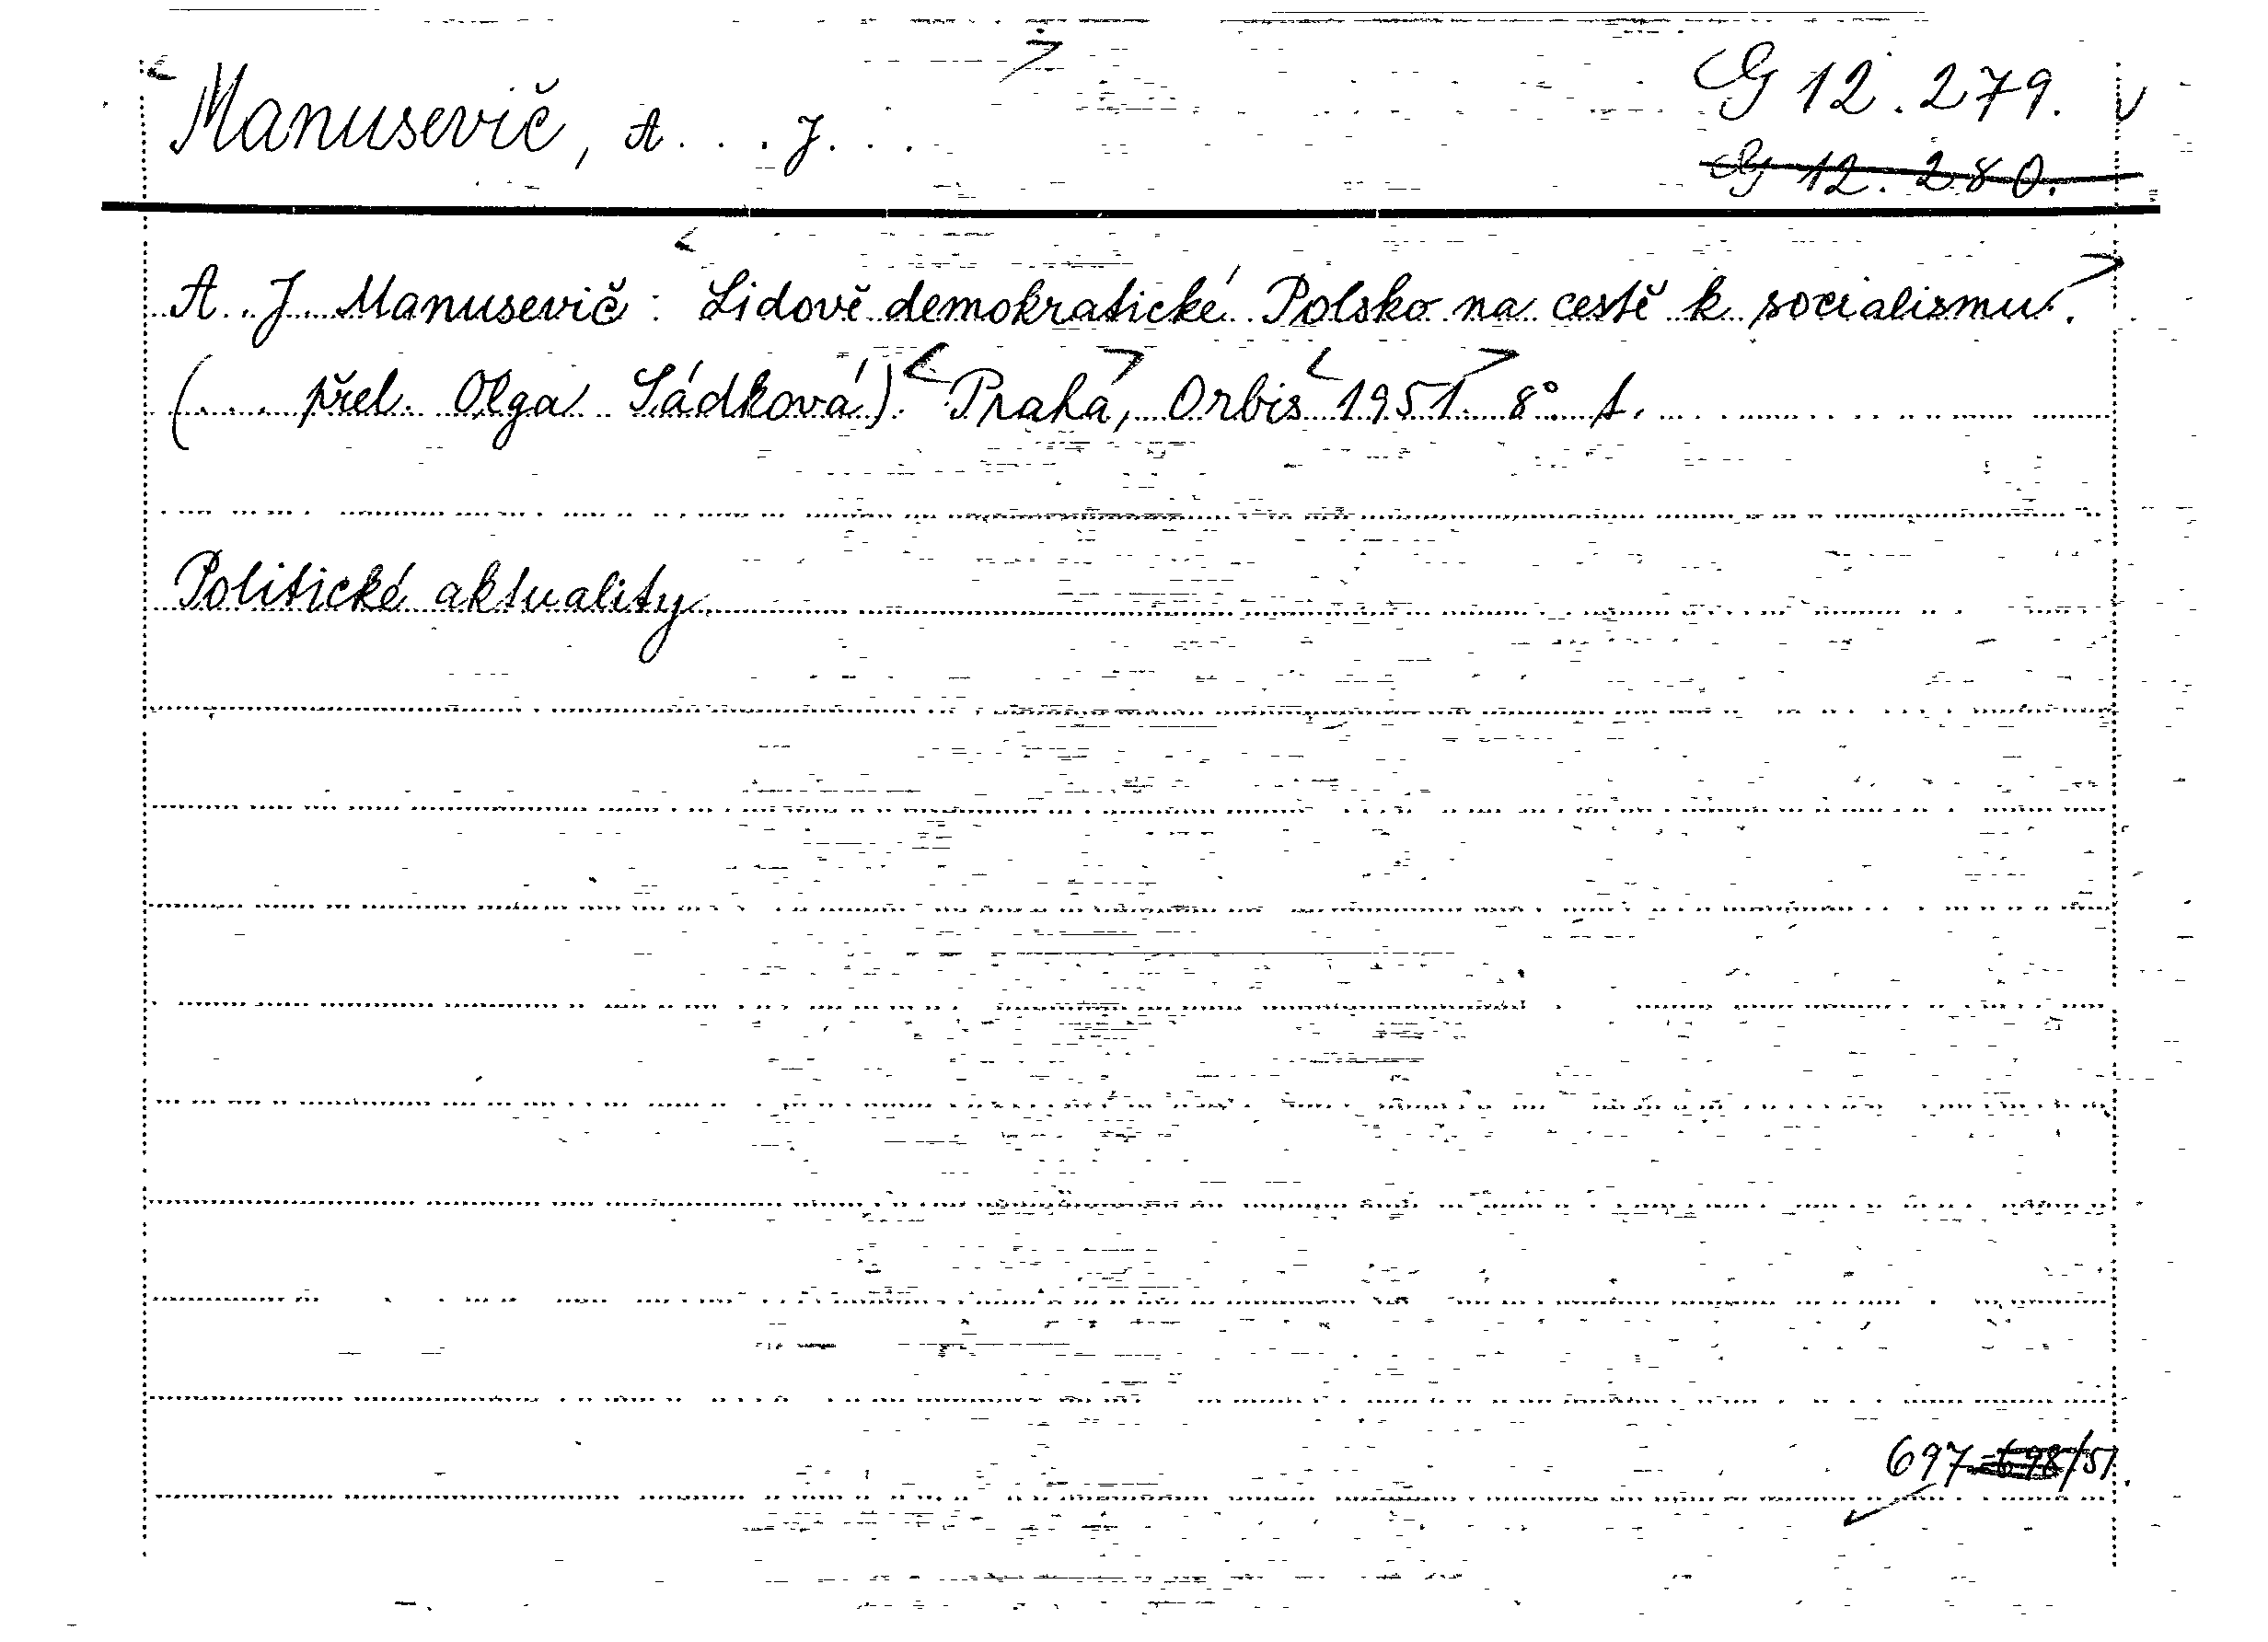 Manusevič, A... J... G 12.279.
G 12.280.
A. J. Manusevič: Lidově demokratické Polsko na cestě k socialismu.
(... přel. Olga Sádková). Praha, Orbis 1951. 8°. 1.
Politické aktuality
697-698/51